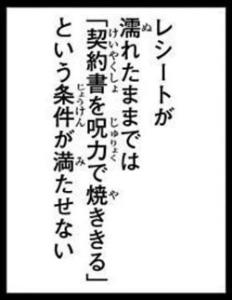 レシートが
濡れたままでは
「契約書を呪力で焼ききる」
という条件が満たせない